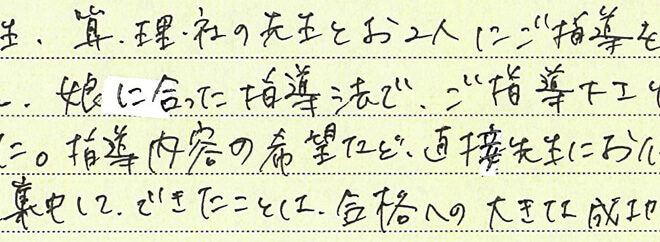 生、算・理・社の先生とお2人にご指導を
、娘に合った指導法で、ご指導下さ
た。指導内容の希望など、直接先生にお
集中して、できたことは、合格への大きな成功